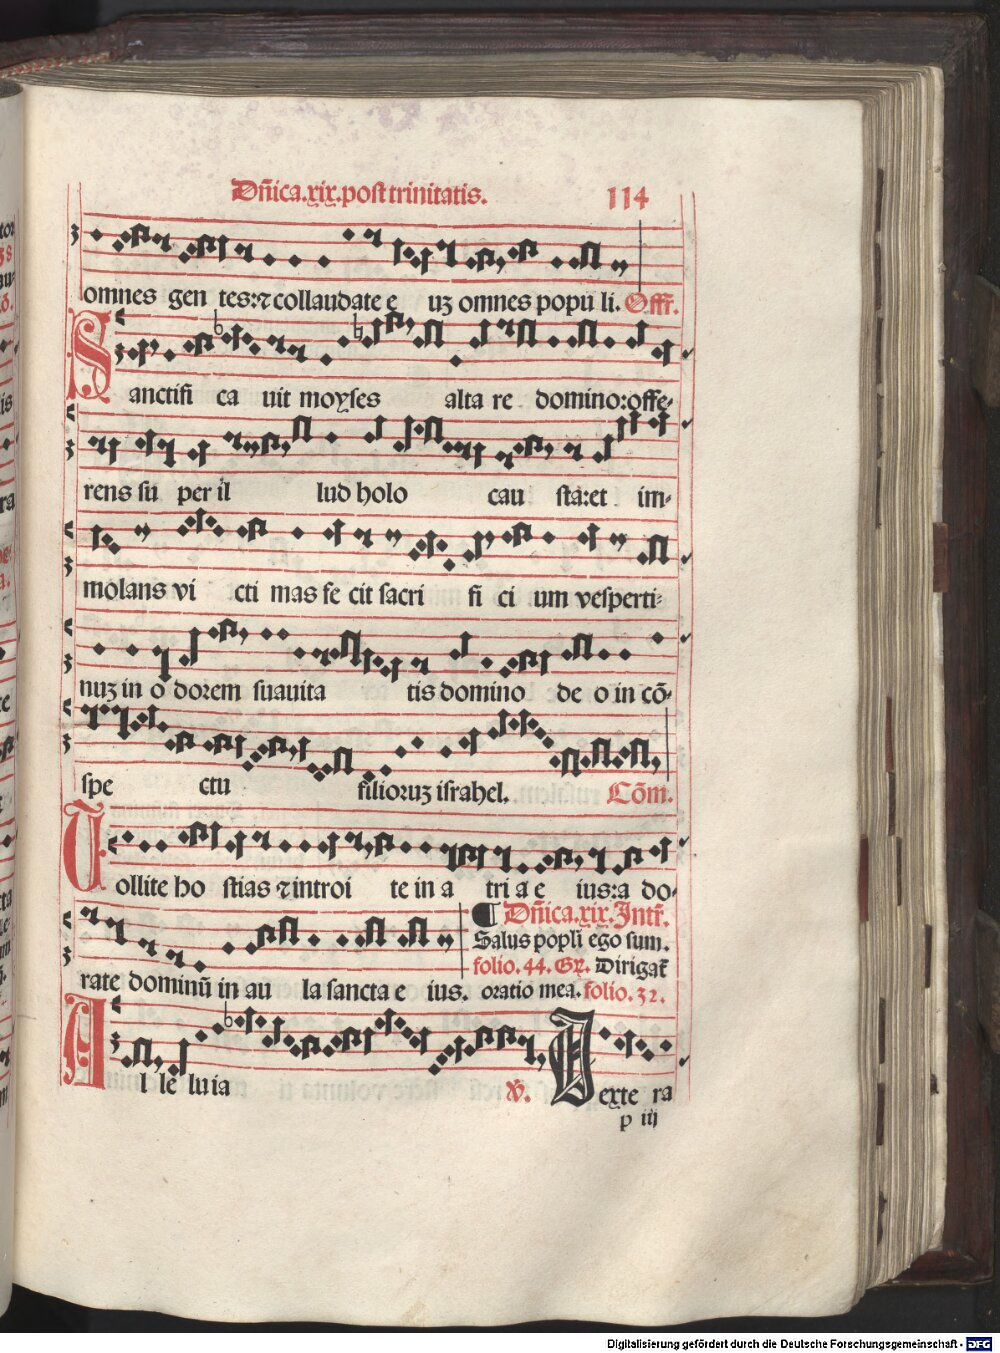 Dñica.xix.post trinitatis. 114
omnes gen tes:⁊ collaudate e uʒ omnes popu li. Offr̃.
Sanctifi ca uit moyses alta re domino:offe-
rens su per il lud holo cau sta:et im-
molans vi cti mas fe cit sacri fi ci um vesperti-
nuʒ in o dorem suauita tis domino de o in cõ-
spe ctu filioruʒ israhel. Cõm.
Tollite ho stias ⁊ introi te in a tri a e ius:a do-
rate dominũ in au la sancta e ius.
¶ Dñica.xix.Intr̃.
Salus popli ego sum.
folio. 44. Gr. Dirigat̃
oratio mea. folio. 32.
Al le lu ia ℣. Dexte ra
p iij
Digitalisierung gefördert durch die Deutsche Forschungsgemeinschaft - DFG